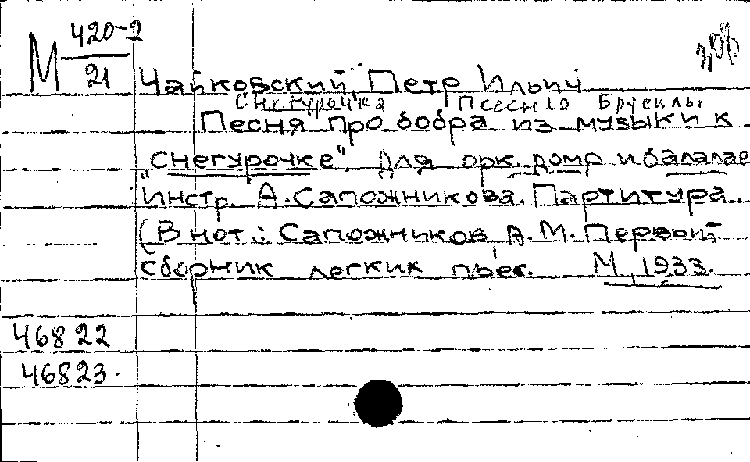 М 420-2
21
Чайковский, Петр Ильич
Снегурочка Песня Брусилы
Песня про бобра из музыки к
"Снегурочке". Для орк. домр и балалаек
Инстр. А. Сапожникова. Партитура.
(В нот.: Сапожников, А.М. Первый
сборник легких пьес. М., 1933.
46822
46823.